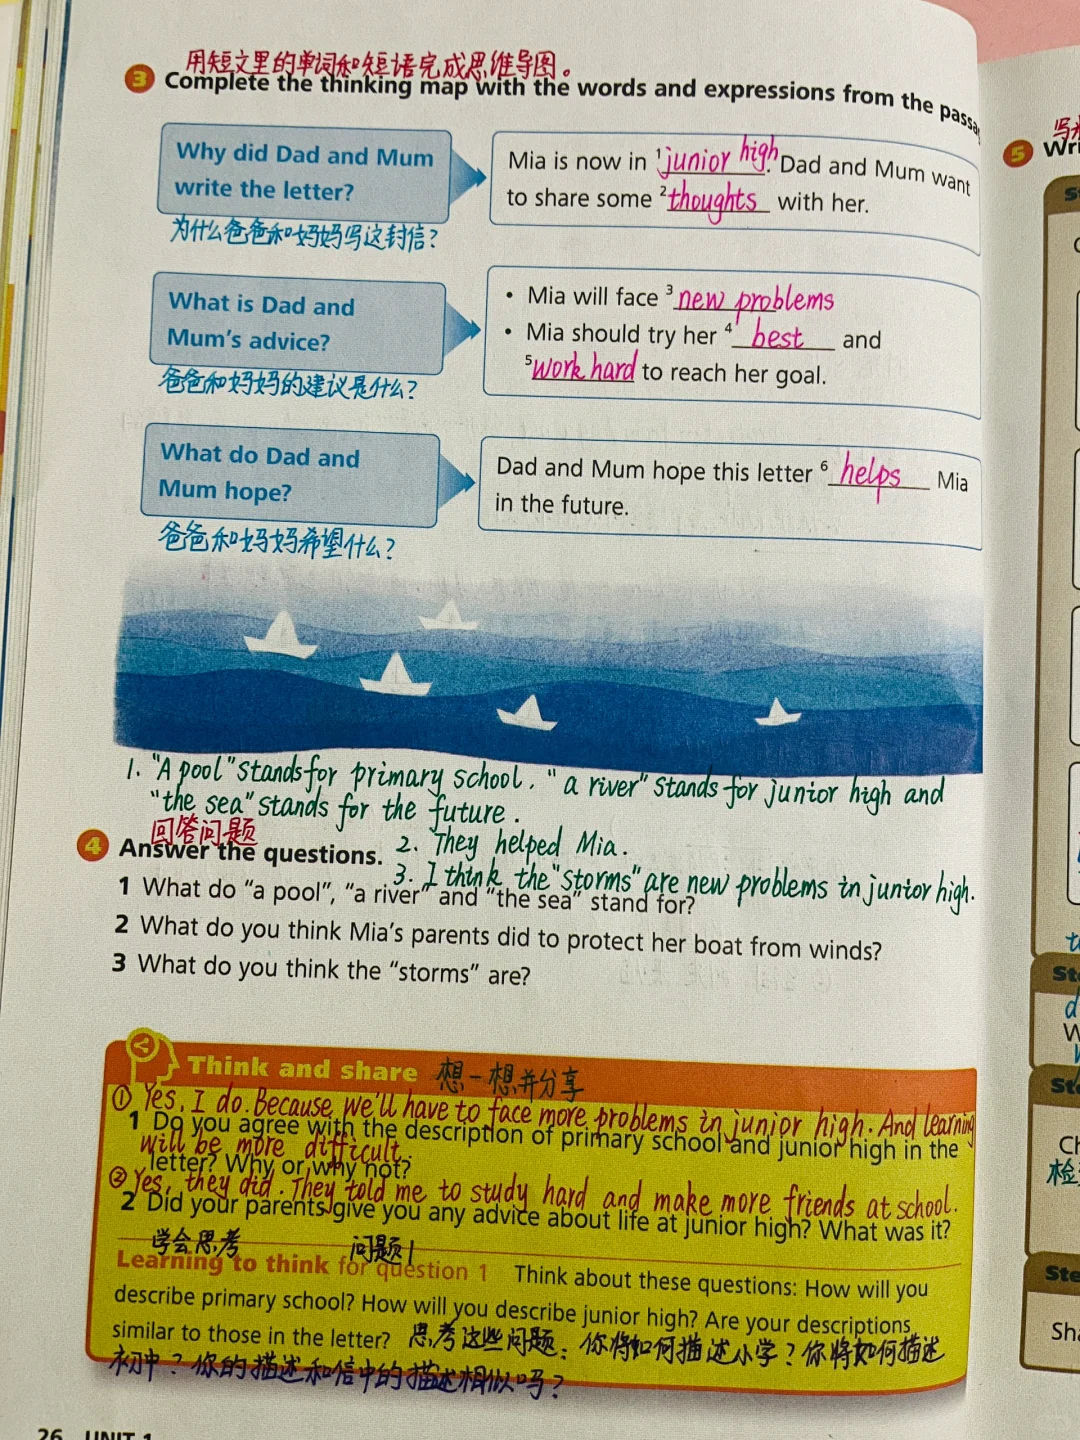 用短文里的单词和短语完成思维导图。
3 Complete the thinking map with the words and expressions from the passa
Why did Dad and Mum
write the letter?
为什么爸爸和妈妈写这封信?
Mia is now in ¹junior high. Dad and Mum want
to share some ²thoughts with her.
What is Dad and
Mum's advice?
爸爸和妈妈的建议是什么?
• Mia will face ³new problems
• Mia should try her ⁴best and
⁵work hard to reach her goal.
What do Dad and
Mum hope?
爸爸和妈妈希望什么?
Dad and Mum hope this letter ⁶helps Mia
in the future.
1. "A pool" stands for primary school, "a river" stands for junior high and
"the sea" stands for the future.
回答问题
4 Answer the questions.
2. They helped Mia.
3. I think the "storms" are new problems in junior high.
1 What do "a pool", "a river" and "the sea" stand for?
2 What do you think Mia's parents did to protect her boat from winds?
3 What do you think the "storms" are?
Think and share 想一想并分享
① Yes, I do. Because we'll have to face more problems in junior high. And learning
will be more difficult.
1 Do you agree with the description of primary school and junior high in the
letter? Why or why not?
② Yes, they did. They told me to study hard and make more friends at school.
2 Did your parents give you any advice about life at junior high? What was it?
学会思考 问题1
Learning to think for question 1 Think about these questions: How will you
describe primary school? How will you describe junior high? Are your descriptions
similar to those in the letter? 思考这些问题: 你将如何描述小学? 你将如何描述
初中? 你的描述和信中的描述相似吗?
26 UNIT 1
5 Wri
St
Ste
Sha